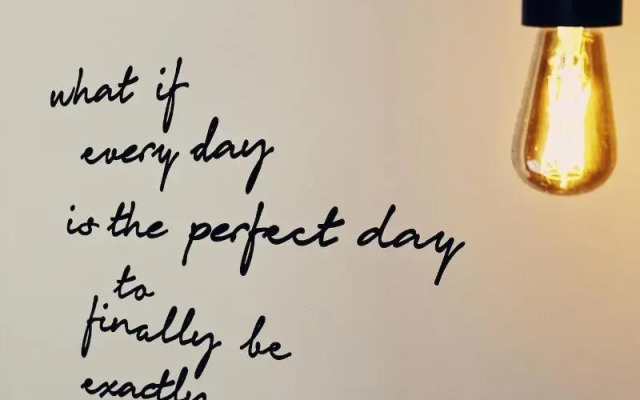 what if
every day
is the perfect day
to
finally be
exactly